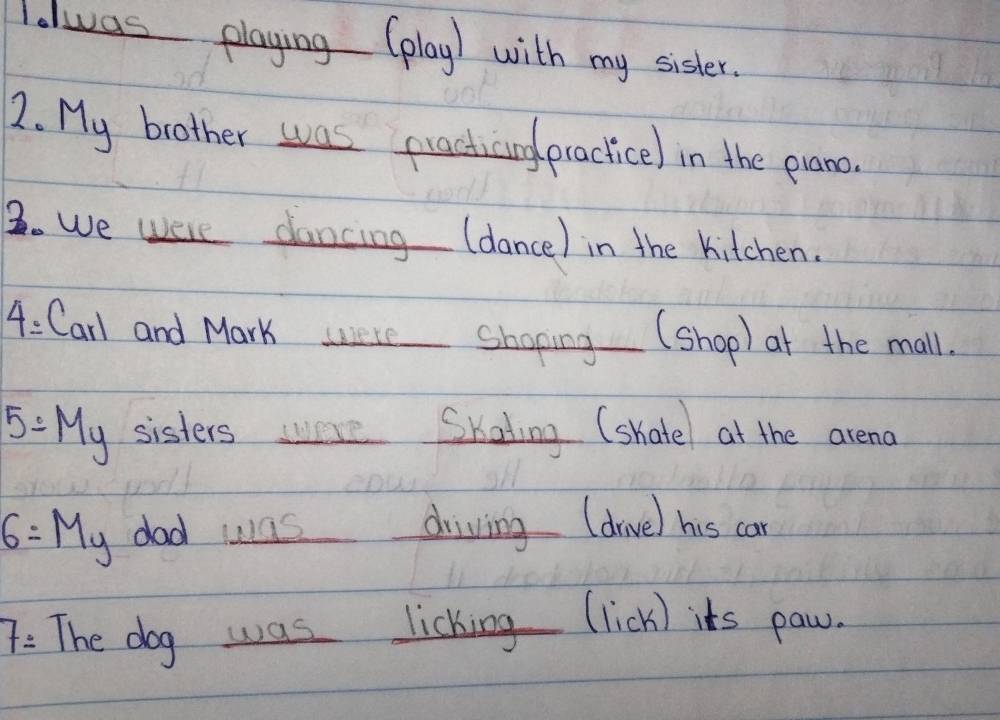 1. I was playing (play) with my sister.
2. My brother was practicing (practice) in the piano.
3. We were dancing (dance) in the kitchen.
4= Carl and Mark were shoping (shop) at the mall.
5= My sisters were skating (skate) at the arena
6= My dad was driving (drive) his car
7= The dog was licking (lick) its paw.